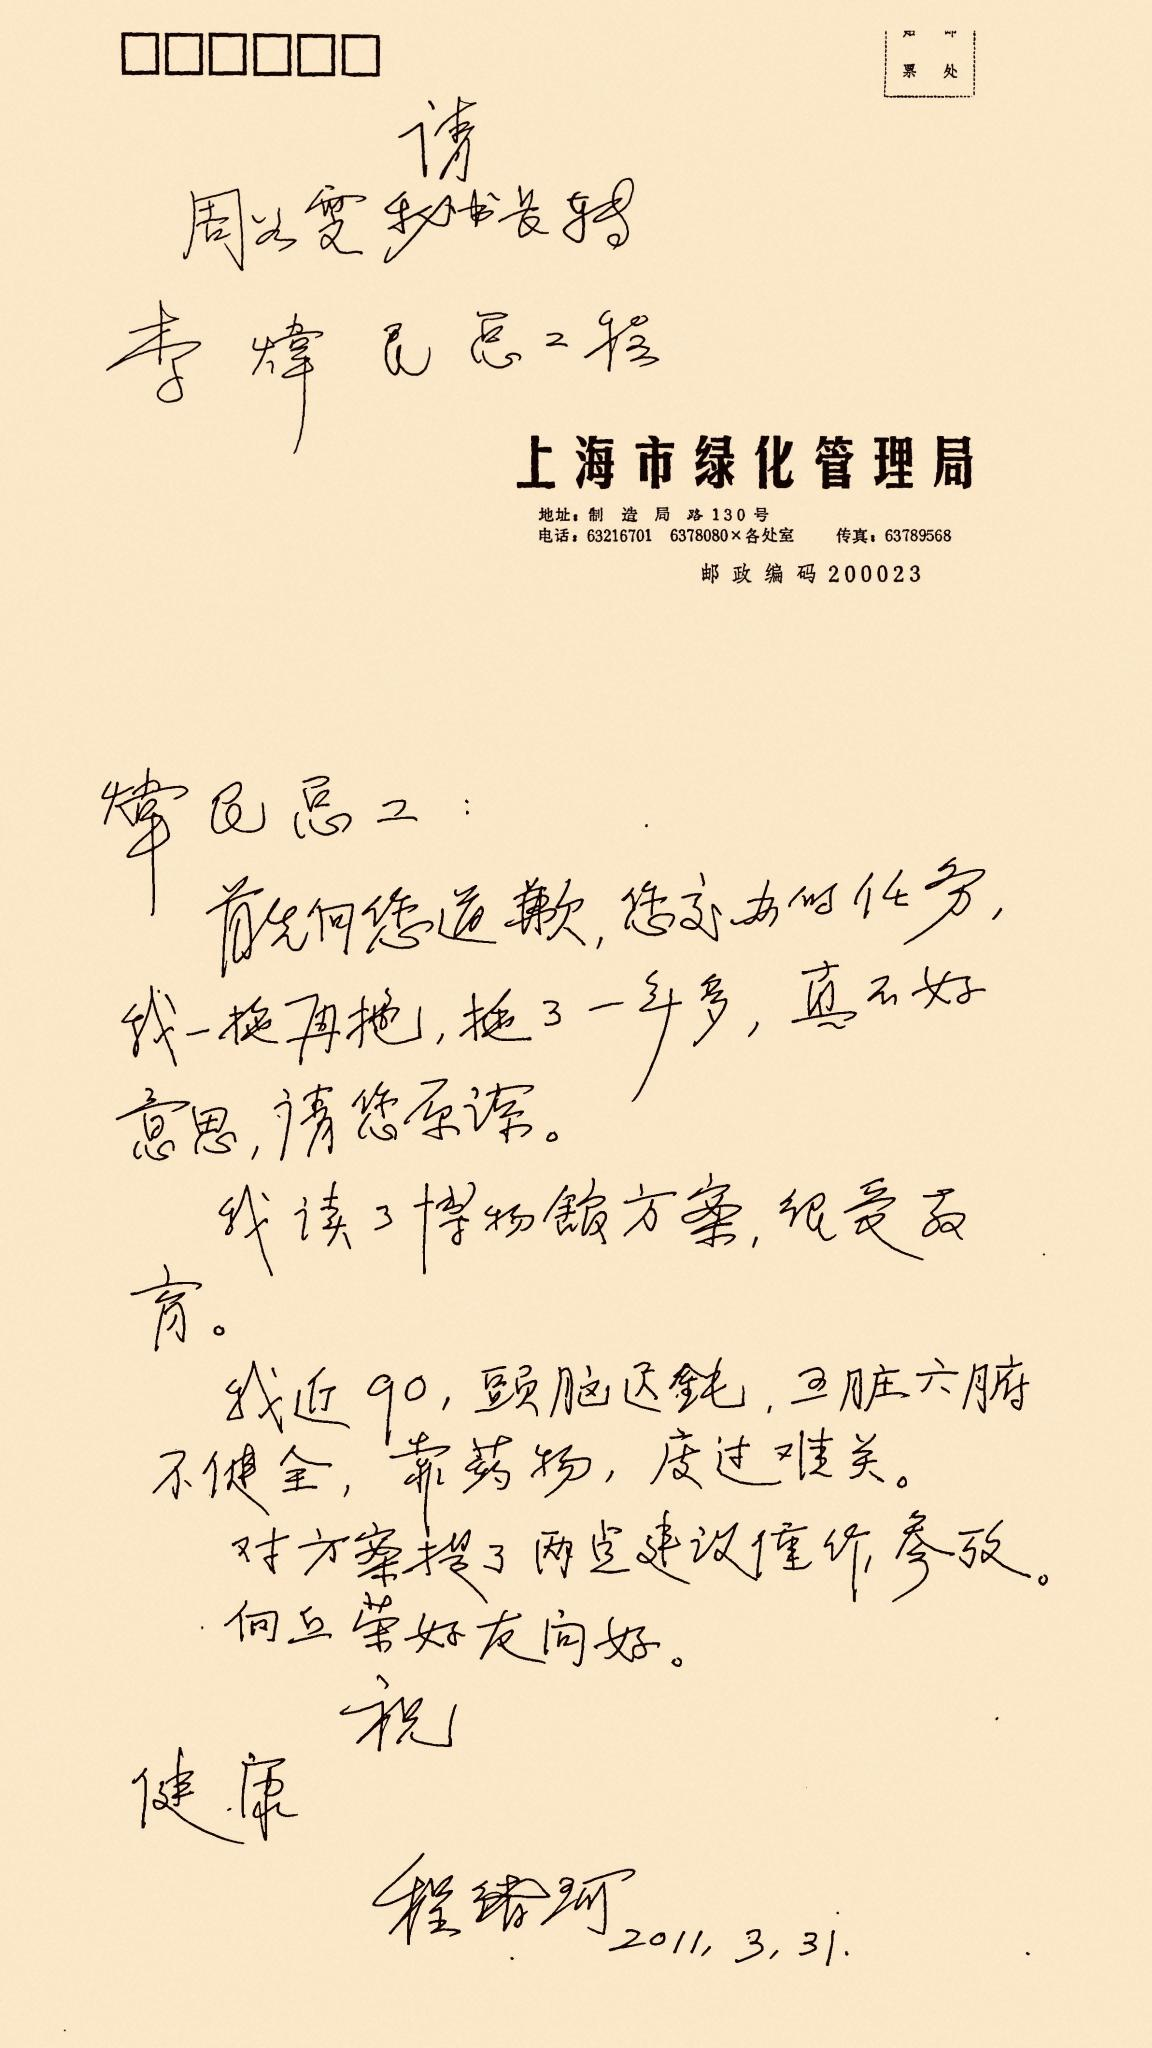 贴 邮
票 处
请
周如雯秘书长转
李煒民总工程
上海市绿化管理局
地址：制造局路130号
电话：63216701 6378080×各处室 传真：63789568
邮政编码200023
煒民总工：
首先向您道歉，您交办的任务，
我一拖再拖，拖了一年多，真不好
意思，请您原谅。
我读了博物館方案，很受教
育。
我近90，頭脑迟鈍，五脏六腑
不健全，靠药物，度过难关。
对方案提了两点建议僅作参攷。
向丘荣好友问好。
祝
健康
程绪珂
2011.3.31.